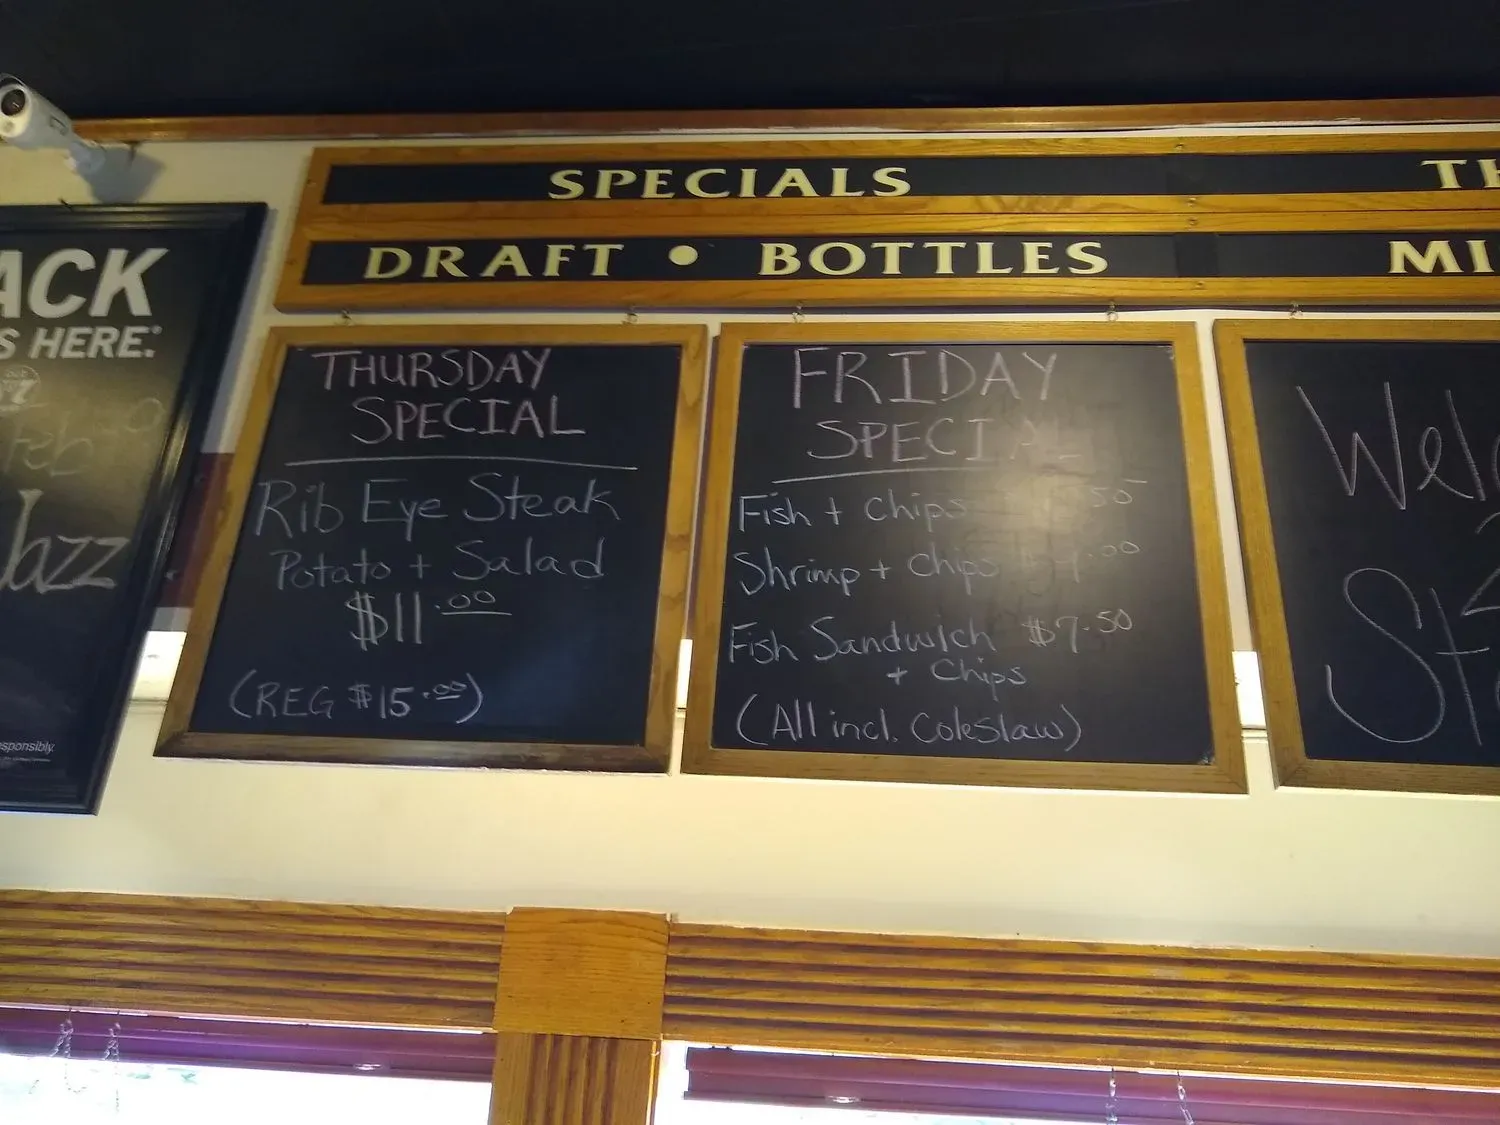 SPECIALS
DRAFT • BOTTLES
ACK
S HERE.
Jazz
sponsibly.
THURSDAY
SPECIAL
Rib Eye Steak
Potato + Salad
$11.00
(REG $15.00)
FRIDAY
SPECIAL
Fish + Chips
Shrimp + Chips
Fish Sandwich $7.50
+ Chips
(All incl. Coleslaw)
TH
MI
Welc
St